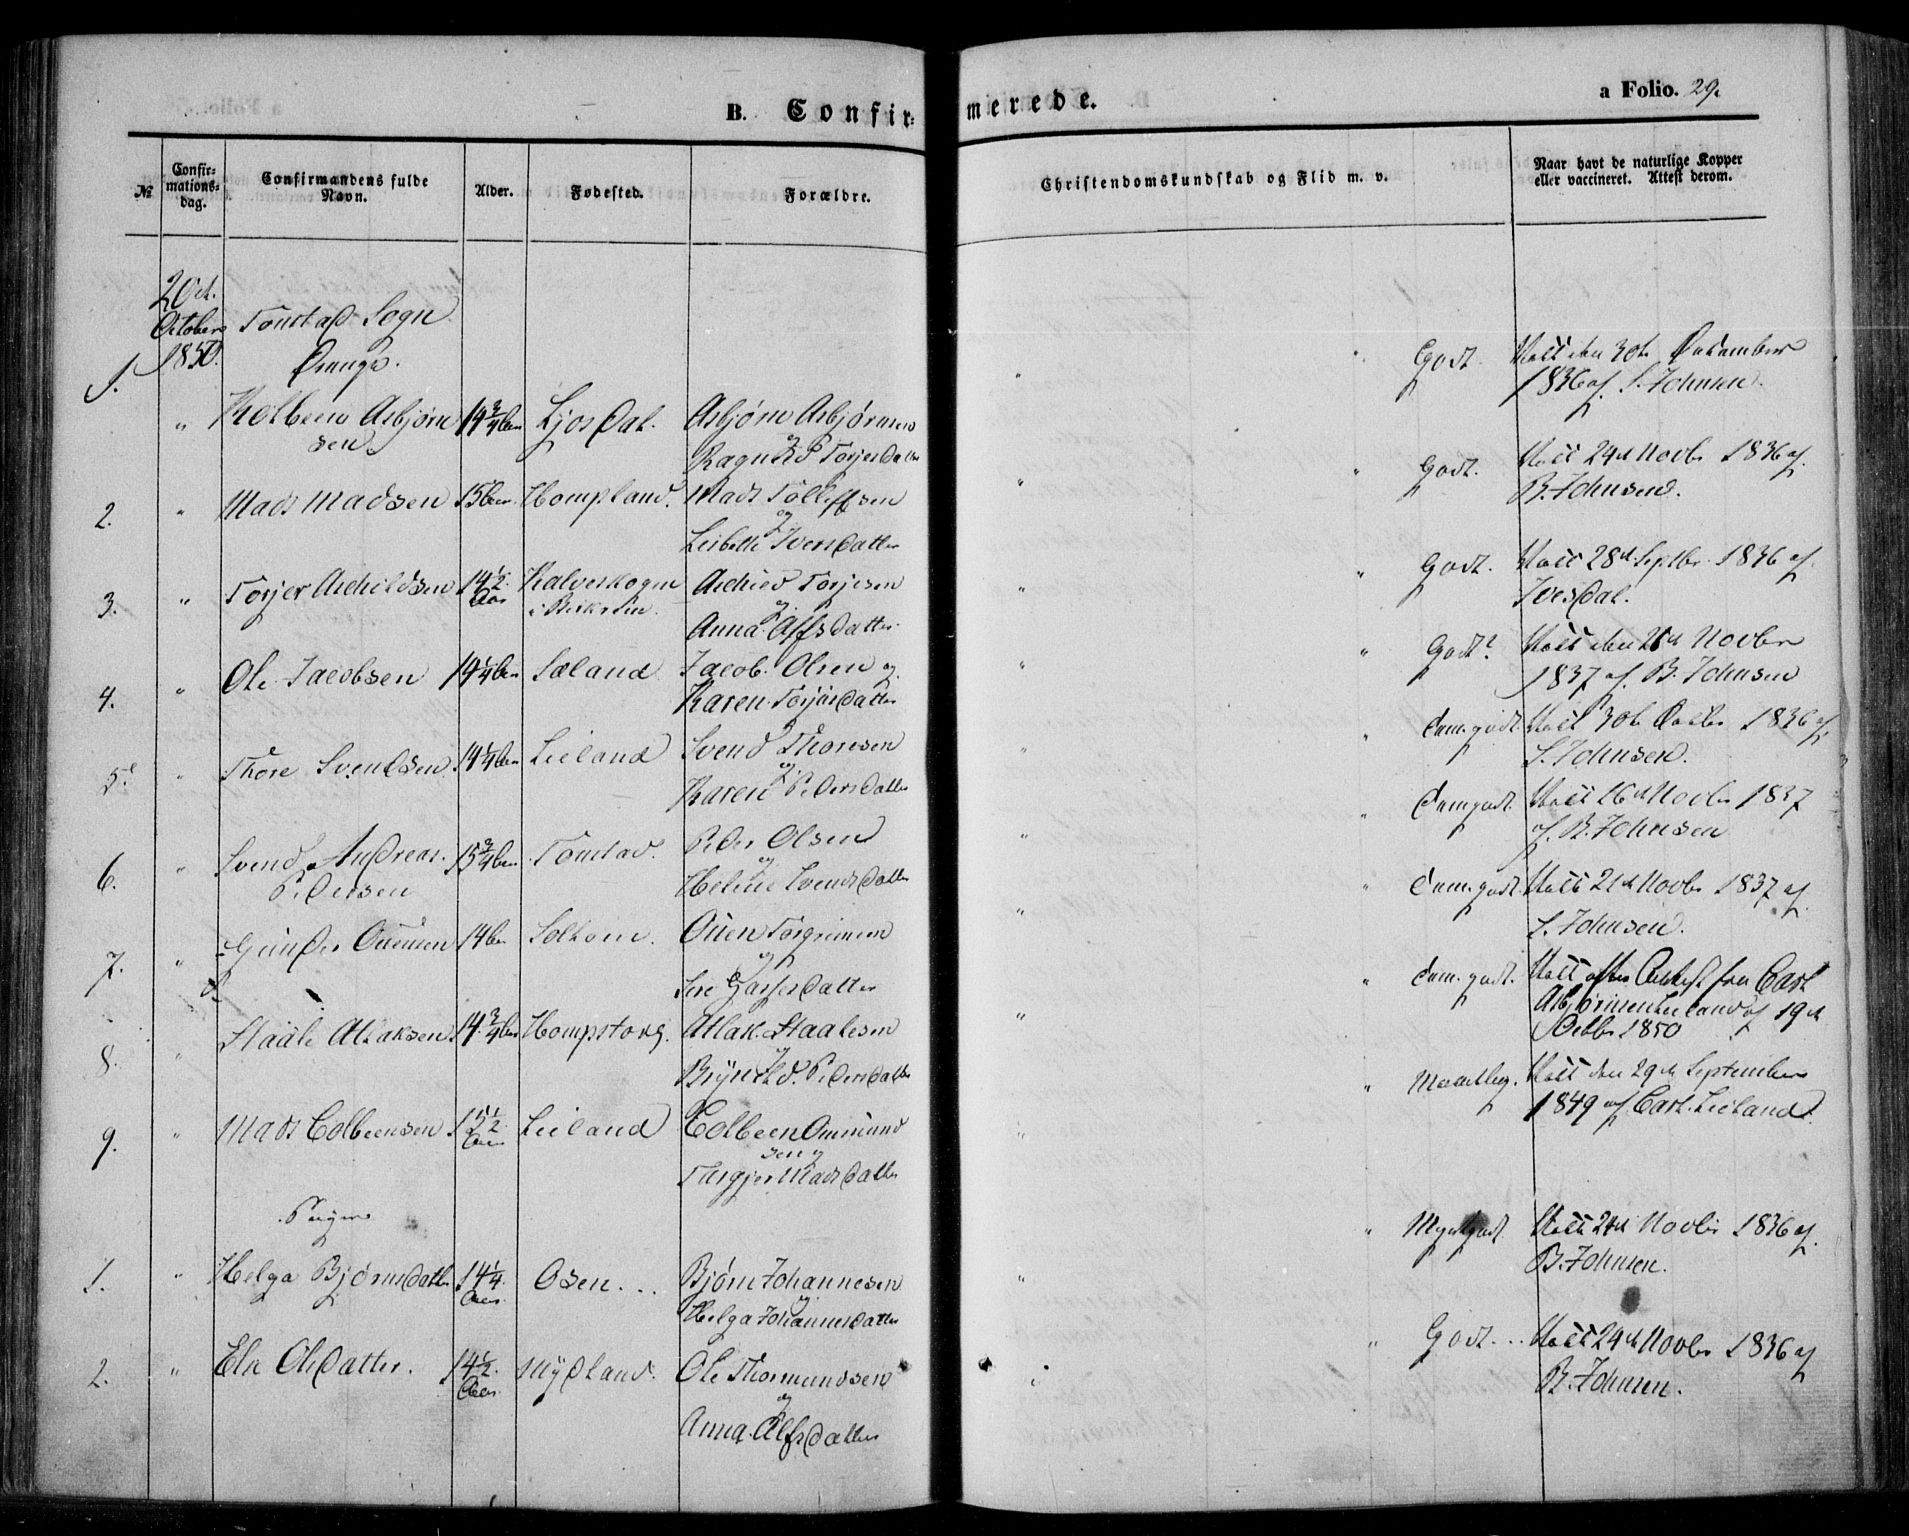 B. Confir-
merede.
a Folio. 29.
№
Confir-
mations-
dag.
Confirmandens fulde
Navn.
Alder.
Fødested.
Forældre.
Christendomskundskab og Flid m. v.
Naar havt de naturlige Kopper
eller vaccineret. Attest derom.
20de
October
1850.
Tonstad Sogn
Drenge.
1. " Kolbeen Asbjørn
sen. 14 3/4 Aar Ljosdal. Asbjørn Asbjørnsen
og
Ragnild Torjersdatter
" " Godt. Vacc den 30te December
1836 af S. Johnsen.
2. " Mads Madsen 15 Aar Hompland. Mads Tolleffsen
og
Lisbeth Iversdatter
" " Godt. Vacc 24d Novbr 1836 af
B. Johnsen.
3. " Torjer Achildsen 14 1/2 Aar Kalveskogen
i Bakke Torjesen
og
Anna Alfsdatter
" " Godt. Vacc 28d Septbr. 1836 af
Ivesdal.
4. " Ole Jacobsen 14 1/4 Aar Sæland Jacob Olsen og
Karen Torjersdatter
" " Godt? Vacc den 21d Novber
1837 af B. Johnsen
5. " Thore Svendsen 14 1/4 Aar Lieland Svend Thoresen
og
Karen Pedersdatter
" " Tem.godt. Vacc 30te Decbr 1836 af
S. Johnsen.
6. " Svend Andreas
Pedersen 15 3/4 Aar Tonstad. Peder Olsen
og
Helene Svendsdatter
" " Temgodt. Vacc 16d Novbr 1837
af B. Johnsen
7. " Gunder Ouensen 14 Aar Solhom. Ouen Torgrimsen
og
Siri Gasesdatter
" " Tem. godt. Vacc 21d Novbr 1837 af
S. Johnsen.
8. " Staale Atlaksen 14 3/4 Aar Hompstorg. Atlak Staalesen
og
Brynild Pedersdatter
" " Tem. godt. Vacc efter Attest fra Carl
Asbjørnsen Lieland af 19d
Octbr 1850
9. " Mads Colbeensen 15 1/2
Aar Lieland Colbeen Ommund
sen og
Targjer Madsdatter
" " Maadelig. Vacc den 29d September
1849 af Carl Lieland.
Piger
1. " Helga Bjørnsdatter 14 1/4
Aar. Osen... Bjørn Johannesen
og
Helga Johannesdatter
" " Megetgodt. Vacc 24d Novbr 1836 af
B. Johnsen.
2. " Eli Olsdatter. 14 1/2
Aar Mydland. Ole Thormundsen
og
Anna Alfsdatter
" " Godt... Vacc 24d Novbr 1836 af
B. Johnsen.